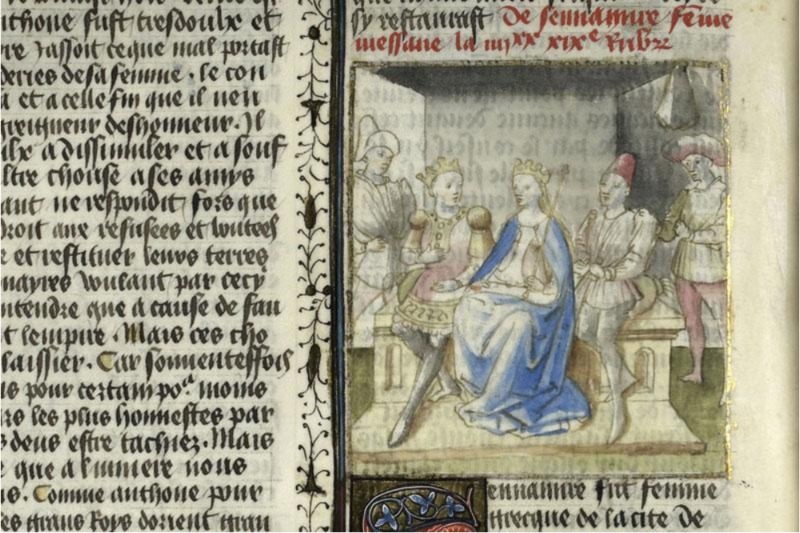 thoine fust tresdoulx et
re Jassoit ceque mal portast
de sa femme . le con
a et acelle fin que il neu
deshonneur . Il
a dissimuler et a souf
ltre chouse a ses amys
ant ne respondit fors que
droit aux refusees et
et restituer leurs terres
voulant par cecy
ntendre que a cause de fau
t lempire . Mais ces cho
laissier . Car souventeffois
is pour certain moins
rs les plus honnestes par
s deus estre tachiez . Mais
que a lumiere nous
s . Comme anthoine pour
es grans Roys dorient grau
sy restaurast De sennamire feme
messane la iiijxx xixe Rubr
ennamire fut femme
grecque de la cite de